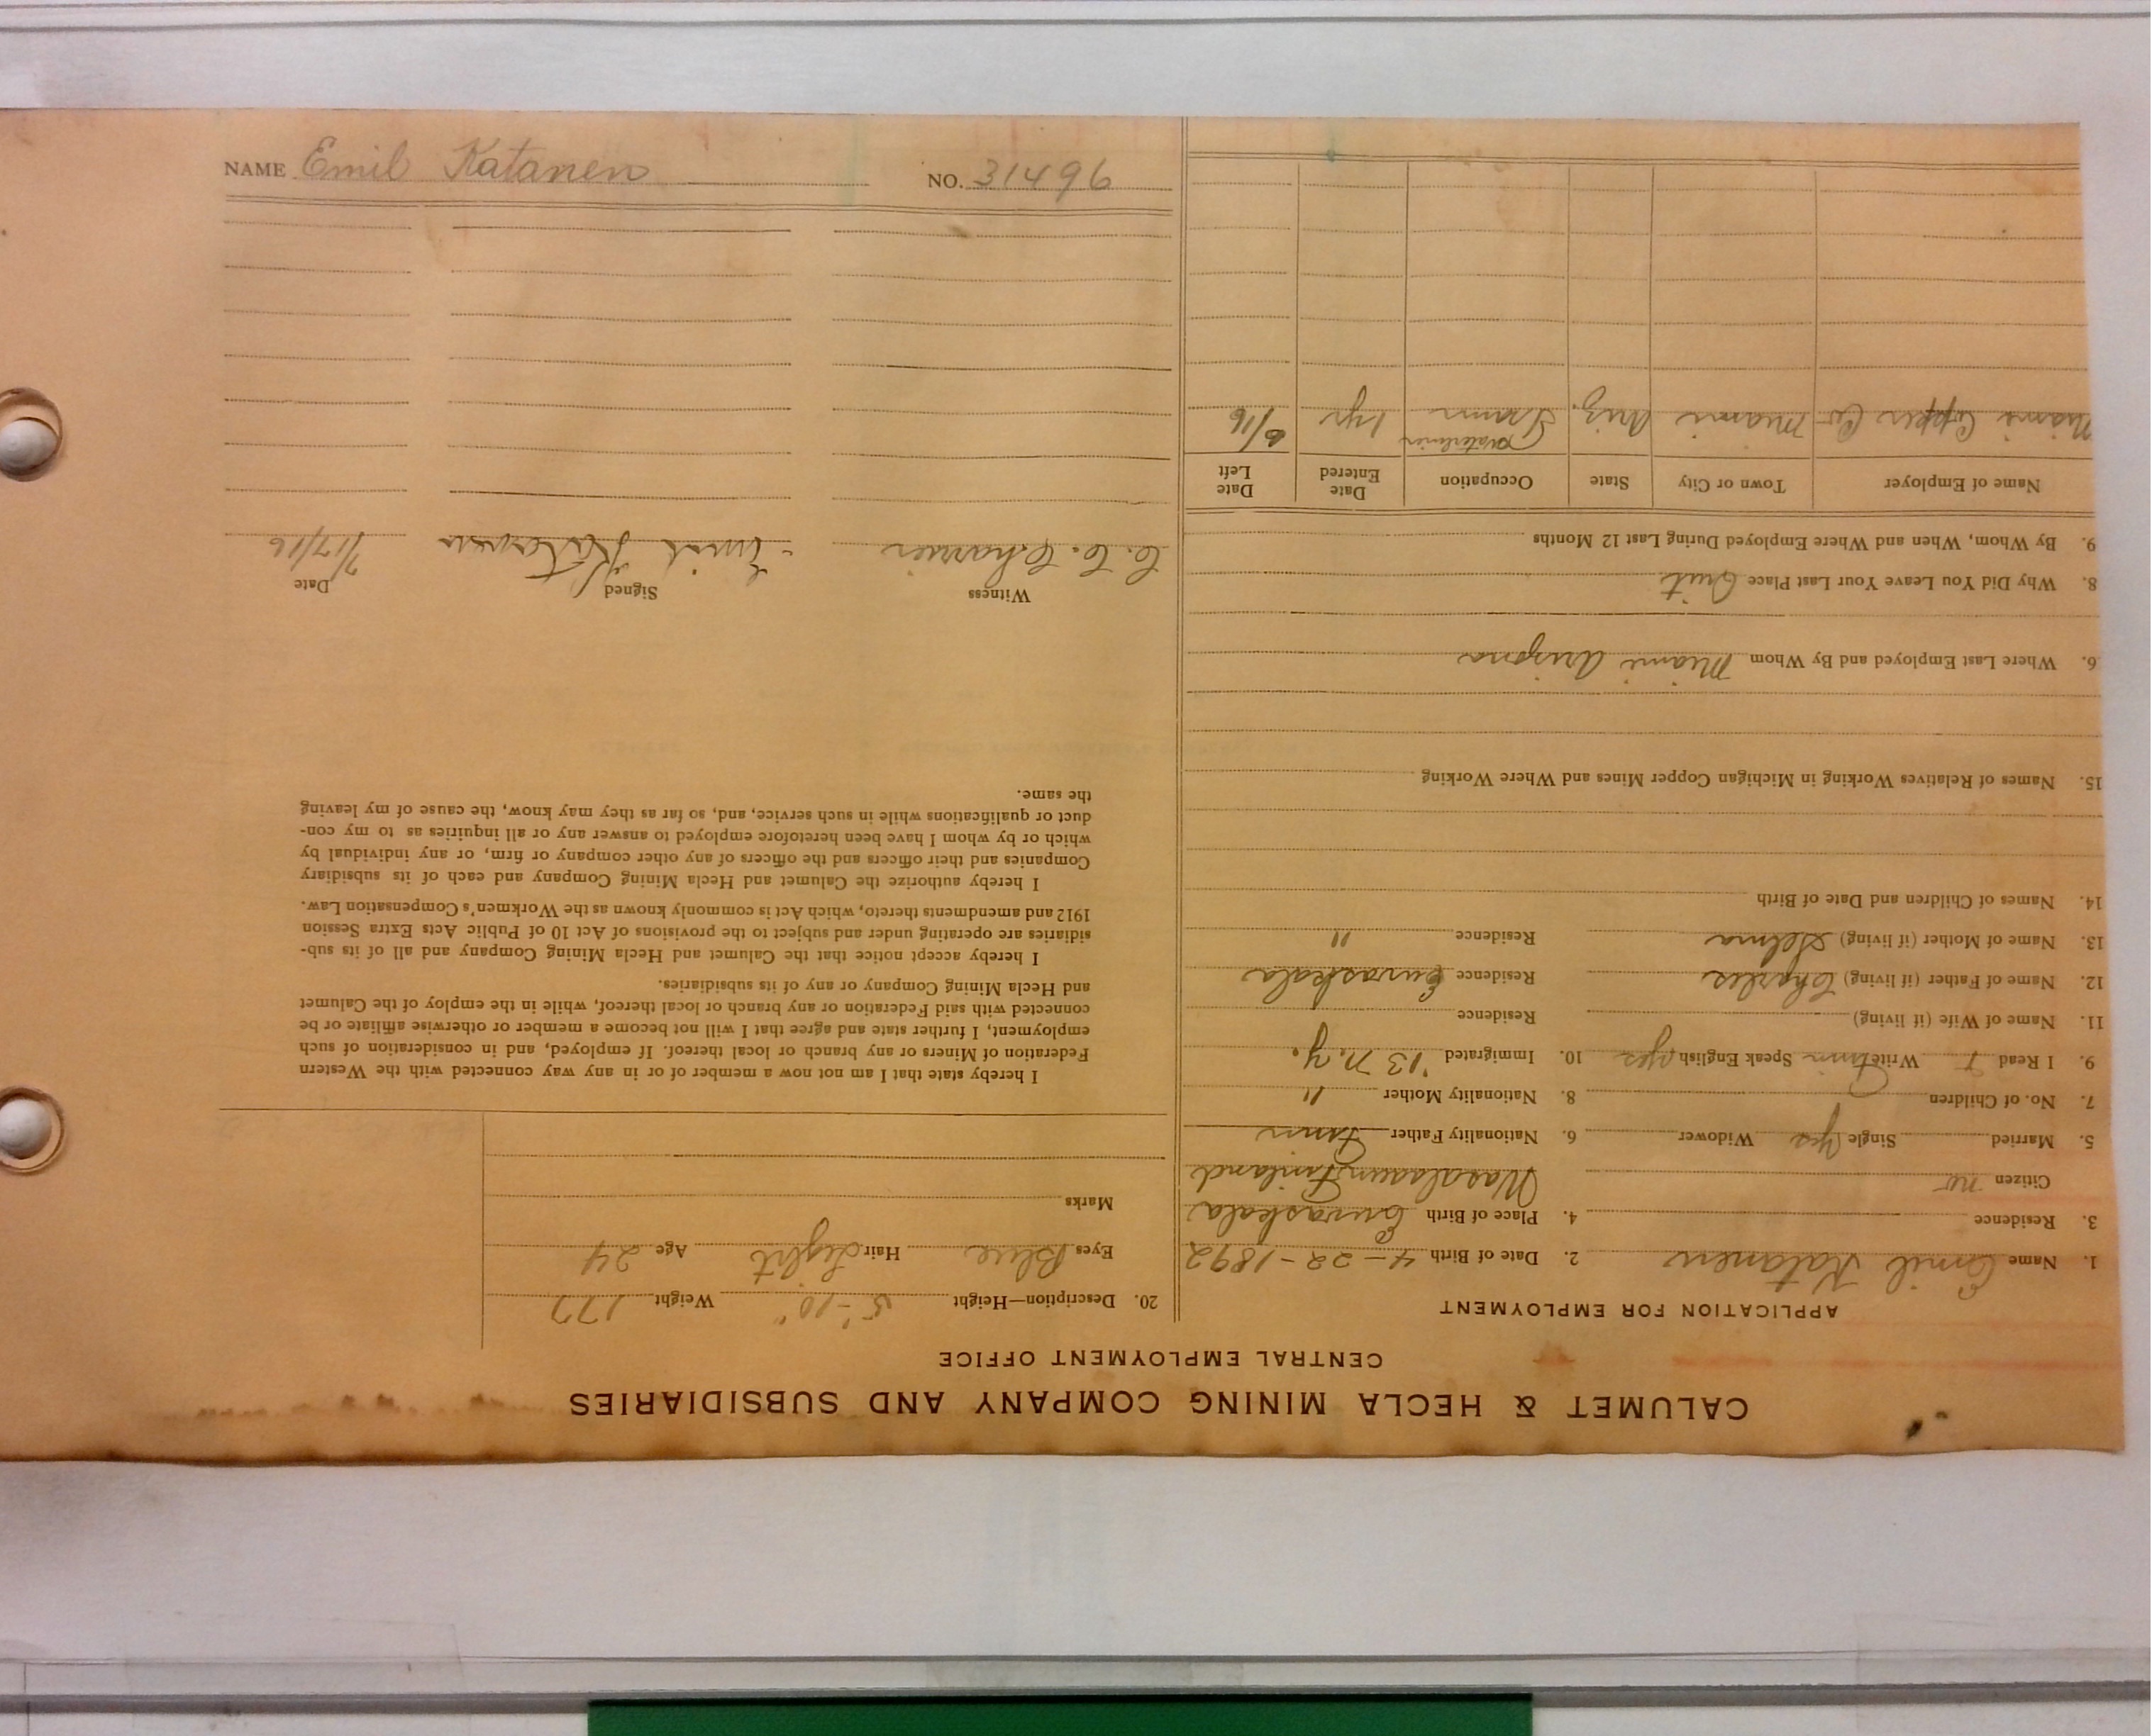 NAME Emil Katanen NO. 31496
CALUMET & HECLA MINING COMPANY AND SUBSIDIARIES
CENTRAL EMPLOYMENT OFFICE
APPLICATION FOR EMPLOYMENT
1. Name Emil Katanen 2. Date of Birth 4-28-1892
3. Residence 4. Place of Birth Euraskala
Citizen no Wasalaan Finland
5. Married Single yes Widower 6. Nationality Father Finn
7. No. of Children 8. Nationality Mother "
9. I Read F Write Finn Speak English yes 10. Immigrated '13 N.Y.
11. Name of Wife (if living) Residence
12. Name of Father (if living) Charles Residence Euraskala
13. Name of Mother (if living) Selma Residence "
14. Names of Children and Date of Birth
15. Names of Relatives Working in Michigan Copper Mines and Where Working
6. Where Last Employed and By Whom Miami Arizona
8. Why Did You Leave Your Last Place Quit
9. By Whom, When and Where Employed During Last 12 Months
Name of Employer Town or City State Occupation Date Entered Date Left
Miami Copper Co Miami Ariz. 1 yr 6/16
20. Description—Height 5'-10" Weight 177
Eyes Blue Hair Light Age 24
Marks
I hereby state that I am not now a member of or in any way connected with the Western
Federation of Miners or any branch or local thereof. If employed, and in consideration of such
employment, I further state and agree that I will not become a member or otherwise affiliate or be
connected with said Federation or any branch or local thereof, while in the employ of the Calumet
and Hecla Mining Company or any of its subsidiaries.
I hereby accept notice that the Calumet and Hecla Mining Company and all of its sub-
sidiaries are operating under and subject to the provisions of Act 10 of Public Acts Extra Session
1912 and amendments thereto, which Act is commonly known as the Workmen's Compensation Law.
I hereby authorize the Calumet and Hecla Mining Company and each of its subsidiary
Companies and their officers and the officers of any other company or firm, or any individual by
which or by whom I have been heretofore employed to answer any or all inquiries as to my con-
duct or qualifications while in such service, and, so far as they may know, the cause of my leaving
the same.
Witness Signed Date
C. C. Emil Katanen 7/17/16